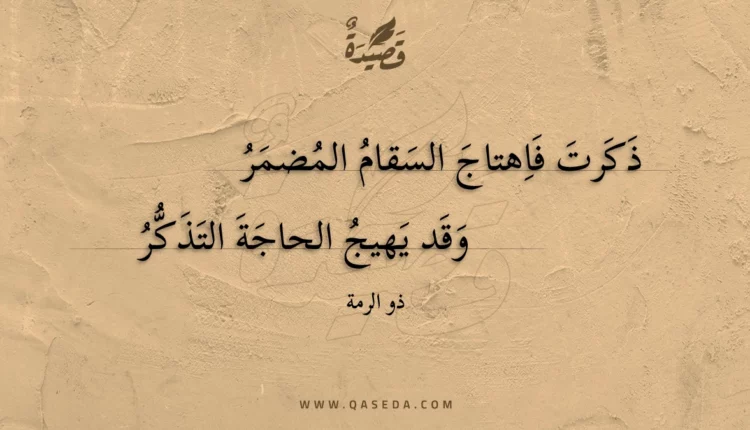 قَصِيدَةٌ
ذَكَرتَ فَاِهتاجَ السَقامُ المُضمَرُ
وَقَد يَهيجُ الحاجَةَ التَذَكُّرُ
ذو الرمة
WWW.QASEDA.COM